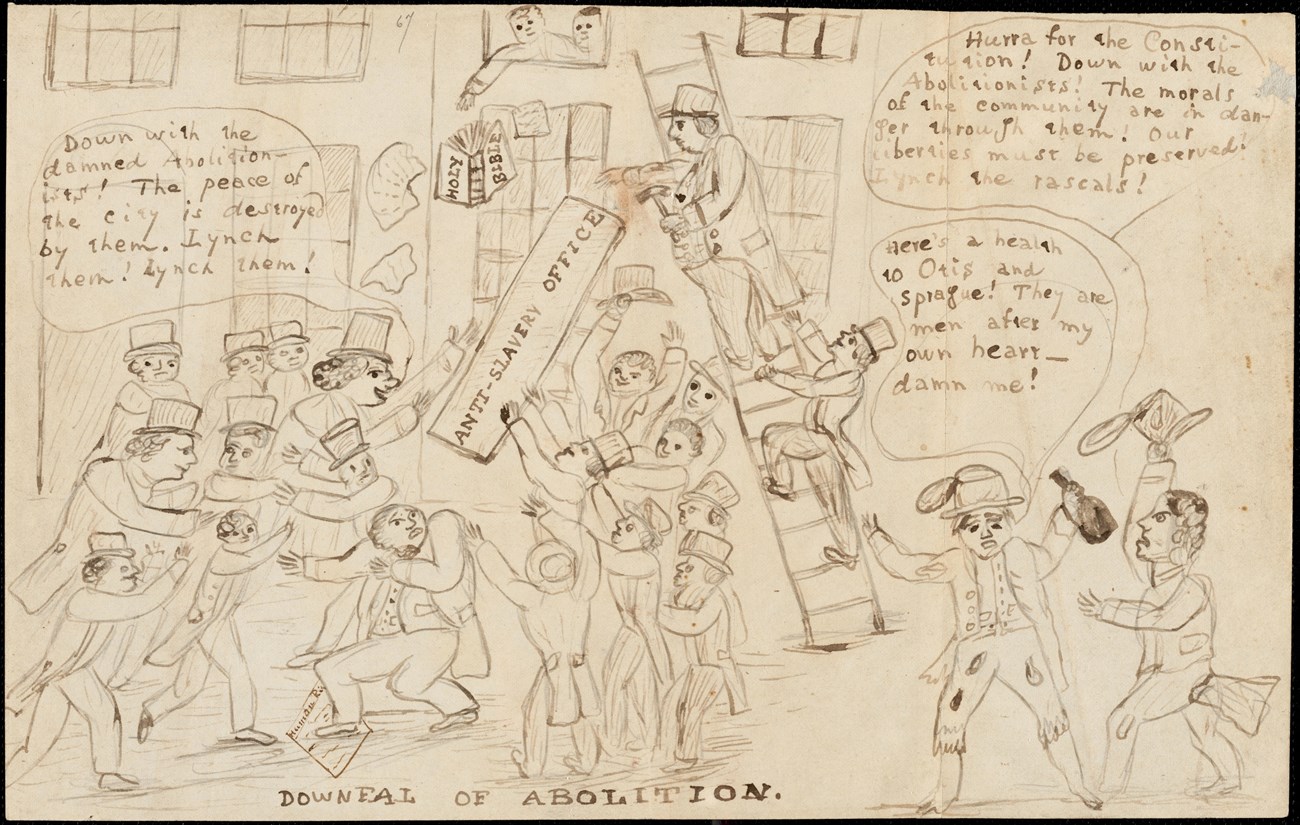 67
Down with the
damned Abolition-
ists! The peace of
the city is destroyed
by them. Lynch
them! Lynch them!
HOLY
BIBLE
ANTI-SLAVERY OFFICE
Hurra for the Consti-
tution! Down with the
Abolitionists! The morals
of the community are in dan-
ger through them! Our
liberties must be preserved!
Lynch the rascals!
Here's a health
to Otis and
Sprague! They are
men after my
own heart—
damn me!
Human
DOWNFAL OF ABOLITION.